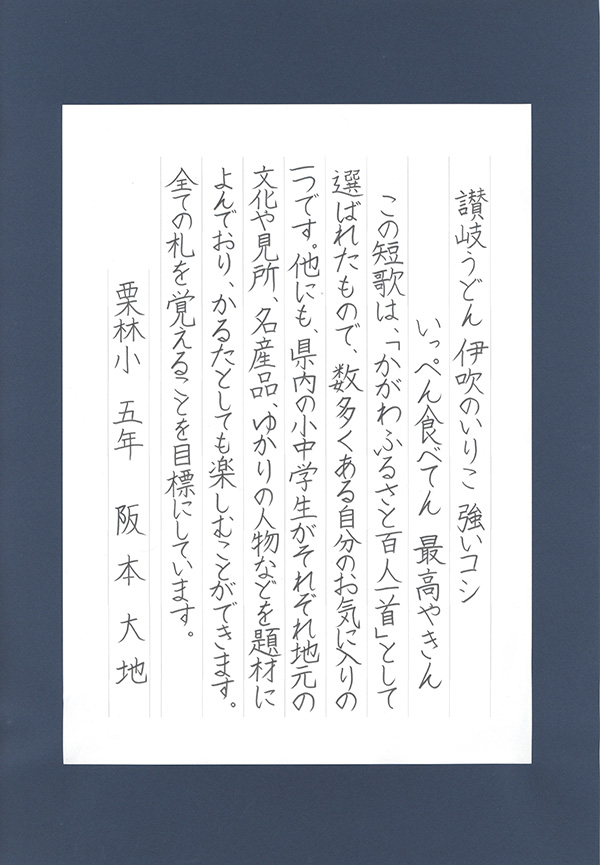 讃岐うどん 伊吹のいりこ 強いコシ
いっぺん食べてん 最高やきん
この短歌は、「かがわふるさと百人一首」として
選ばれたもので、数多くある自分のお気に入りの
一つです。他にも、県内の小中学生がそれぞれ地元の
文化や見所、名産品、ゆかりの人物などを題材に
よんでおり、かるたとしても楽しむことができます。
全ての札を覚えることを目標にしています。
栗林小 五年 阪本大地